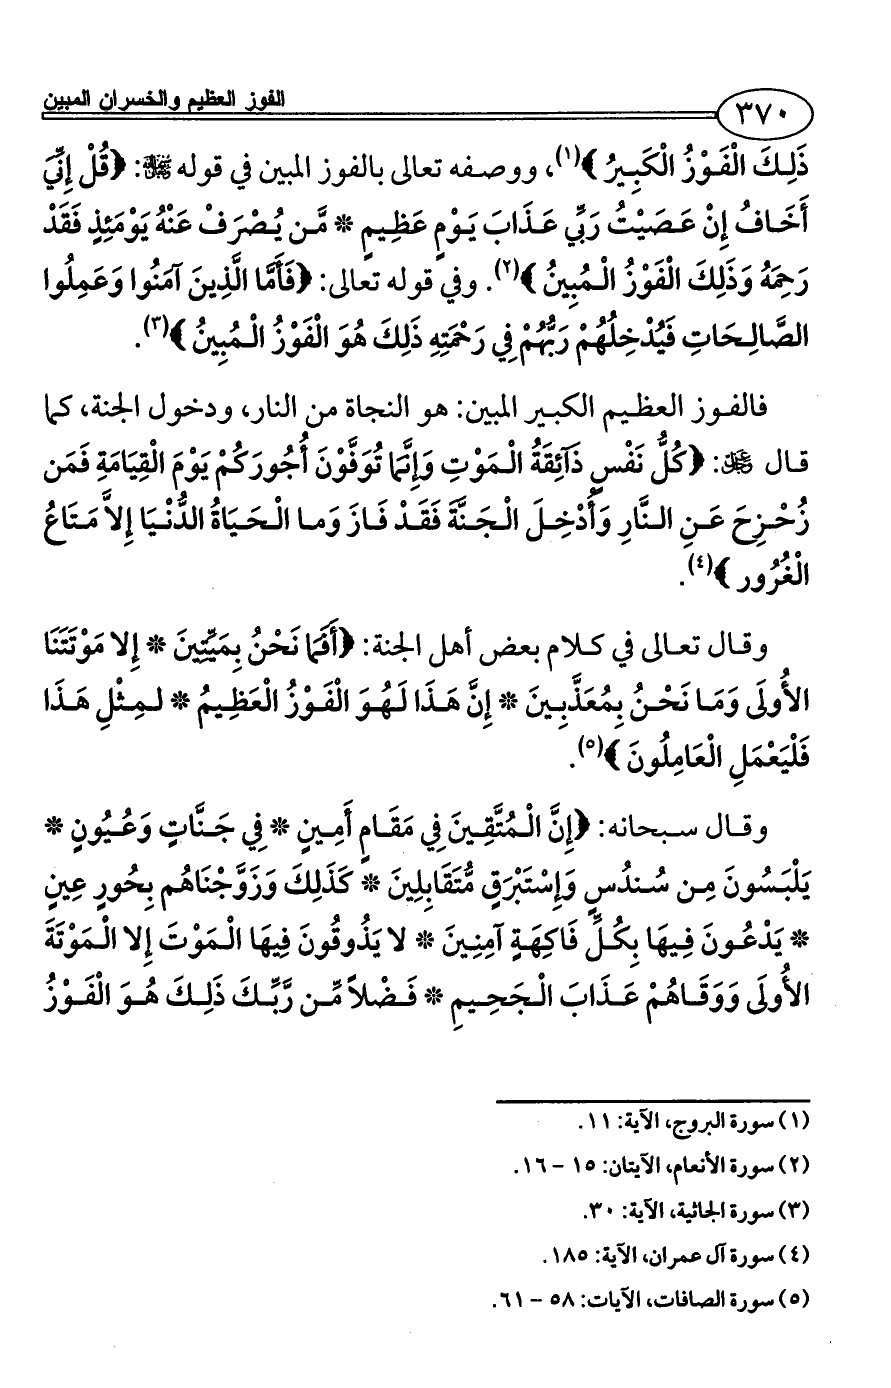 ٣٧٠
الفوز العظيم والخسران المبين
ذَلِكَ الْفَوْزُ الْكَبِيرُ﴾(١)، ووصفه تعالى بالفوز المبين في قوله ﷻ: ﴿قُلْ إِنِّيَ
أَخَافُ إِنْ عَصَيْتُ رَبِّي عَذَابَ يَوْمٍ عَظِيمٍ * مَّن يُصْرَفْ عَنْهُ يَوْمَئِذٍ فَقَدْ
رَحِمَهُ وَذَلِكَ الْفَوْزُ الْمُبِينُ﴾(٢). وفي قوله تعالى: ﴿فَأَمَّا الَّذِينَ آمَنُوا وَعَمِلُوا
الصَّالِحَاتِ فَيُدْخِلُهُمْ رَبُّهُمْ فِي رَحْمَتِهِ ذَلِكَ هُوَ الْفَوْزُ الْمُبِينُ﴾(٣).
فالفوز العظيم الكبير المبين: هو النجاة من النار، ودخول الجنة، كما
قال ﷻ: ﴿كُلُّ نَفْسٍ ذَآئِقَةُ الْمَوْتِ وَإِنَّمَا تُوَفَّوْنَ أُجُورَكُمْ يَوْمَ الْقِيَامَةِ فَمَن
زُحْزِحَ عَنِ النَّارِ وَأُدْخِلَ الْجَنَّةَ فَقَدْ فَازَ وَما الْحَيَاةُ الدُّنْيَا إِلاَّ مَتَاعُ
الْغُرُورِ﴾(٤).
وقال تعالى في كلام بعض أهل الجنة: ﴿أَفَمَا نَحْنُ بِمَيِّتِينَ * إِلا مَوْتَتَنَا
الأُولَى وَمَا نَحْنُ بِمُعَذَّبِينَ * إِنَّ هَذَا لَهُوَ الْفَوْزُ الْعَظِيمُ * لِمِثْلِ هَذَا
فَلْيَعْمَلِ الْعَامِلُونَ﴾(٥).
وقال سبحانه: ﴿إِنَّ الْمُتَّقِينَ فِي مَقَامٍ أَمِينٍ * فِي جَنَّاتٍ وَعُيُونٍ *
يَلْبَسُونَ مِن سُندُسٍ وَإِسْتَبْرَقٍ مُّتَقَابِلِينَ * كَذَلِكَ وَزَوَّجْنَاهُم بِحُورٍ عِينٍ
* يَدْعُونَ فِيهَا بِكُلِّ فَاكِهَةٍ آمِنِينَ * لا يَذُوقُونَ فِيهَا الْمَوْتَ إِلا الْمَوْتَةَ
الأُولَى وَوَقَاهُمْ عَذَابَ الْجَحِيمِ * فَضْلاً مِّن رَّبِّكَ ذَلِكَ هُوَ الْفَوْزُ
(١) سورة البروج، الآية: ١١.
(٢) سورة الأنعام، الآيتان: ١٥ – ١٦.
(٣) سورة الجاثية، الآية: ٣٠.
(٤) سورة آل عمران، الآية: ١٨٥.
(٥) سورة الصافات، الآيات: ٥٨ – ٦١.